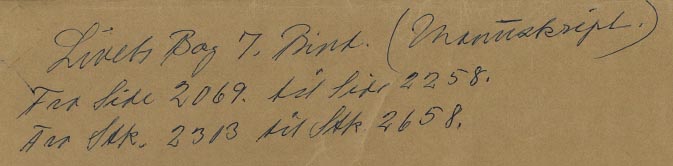 Livets Bog 7. Bind. (Manuskript.)
Fra Side 2069. til Side 2258.
Fra Stk. 2313 til Stk 2658.